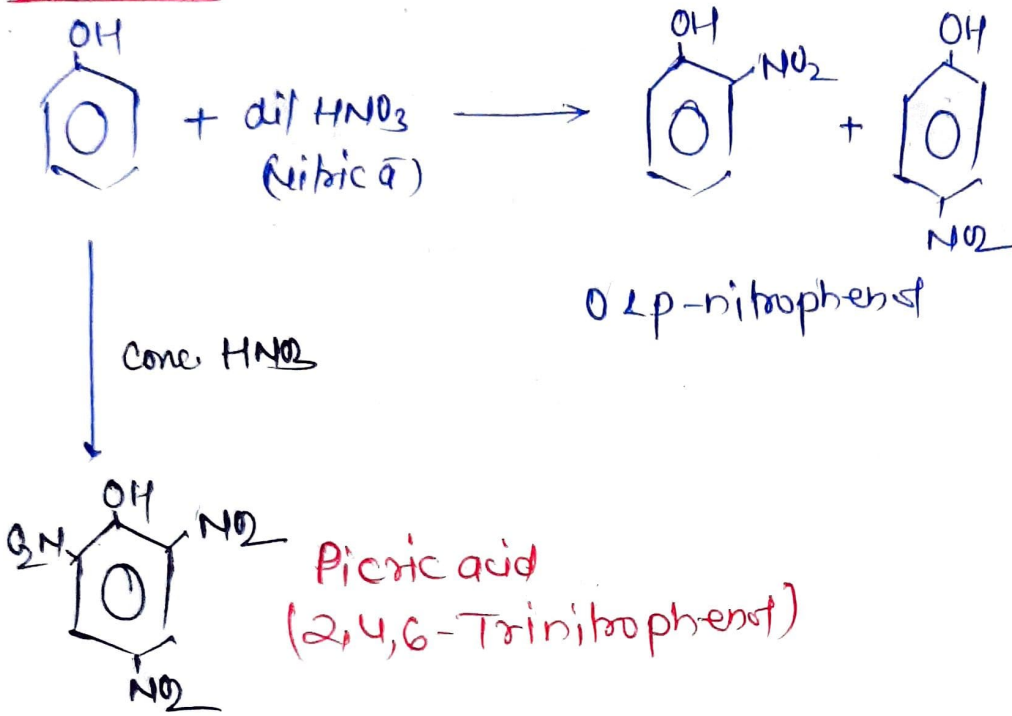 OH
+ dil HNO3
(Nitric a)
OH
NO2
+
OH
NO2
O & p-nitrophenol
Conc HNO3
OH
O2N
NO2
NO2
Picric acid
(2,4,6-Trinitrophenol)